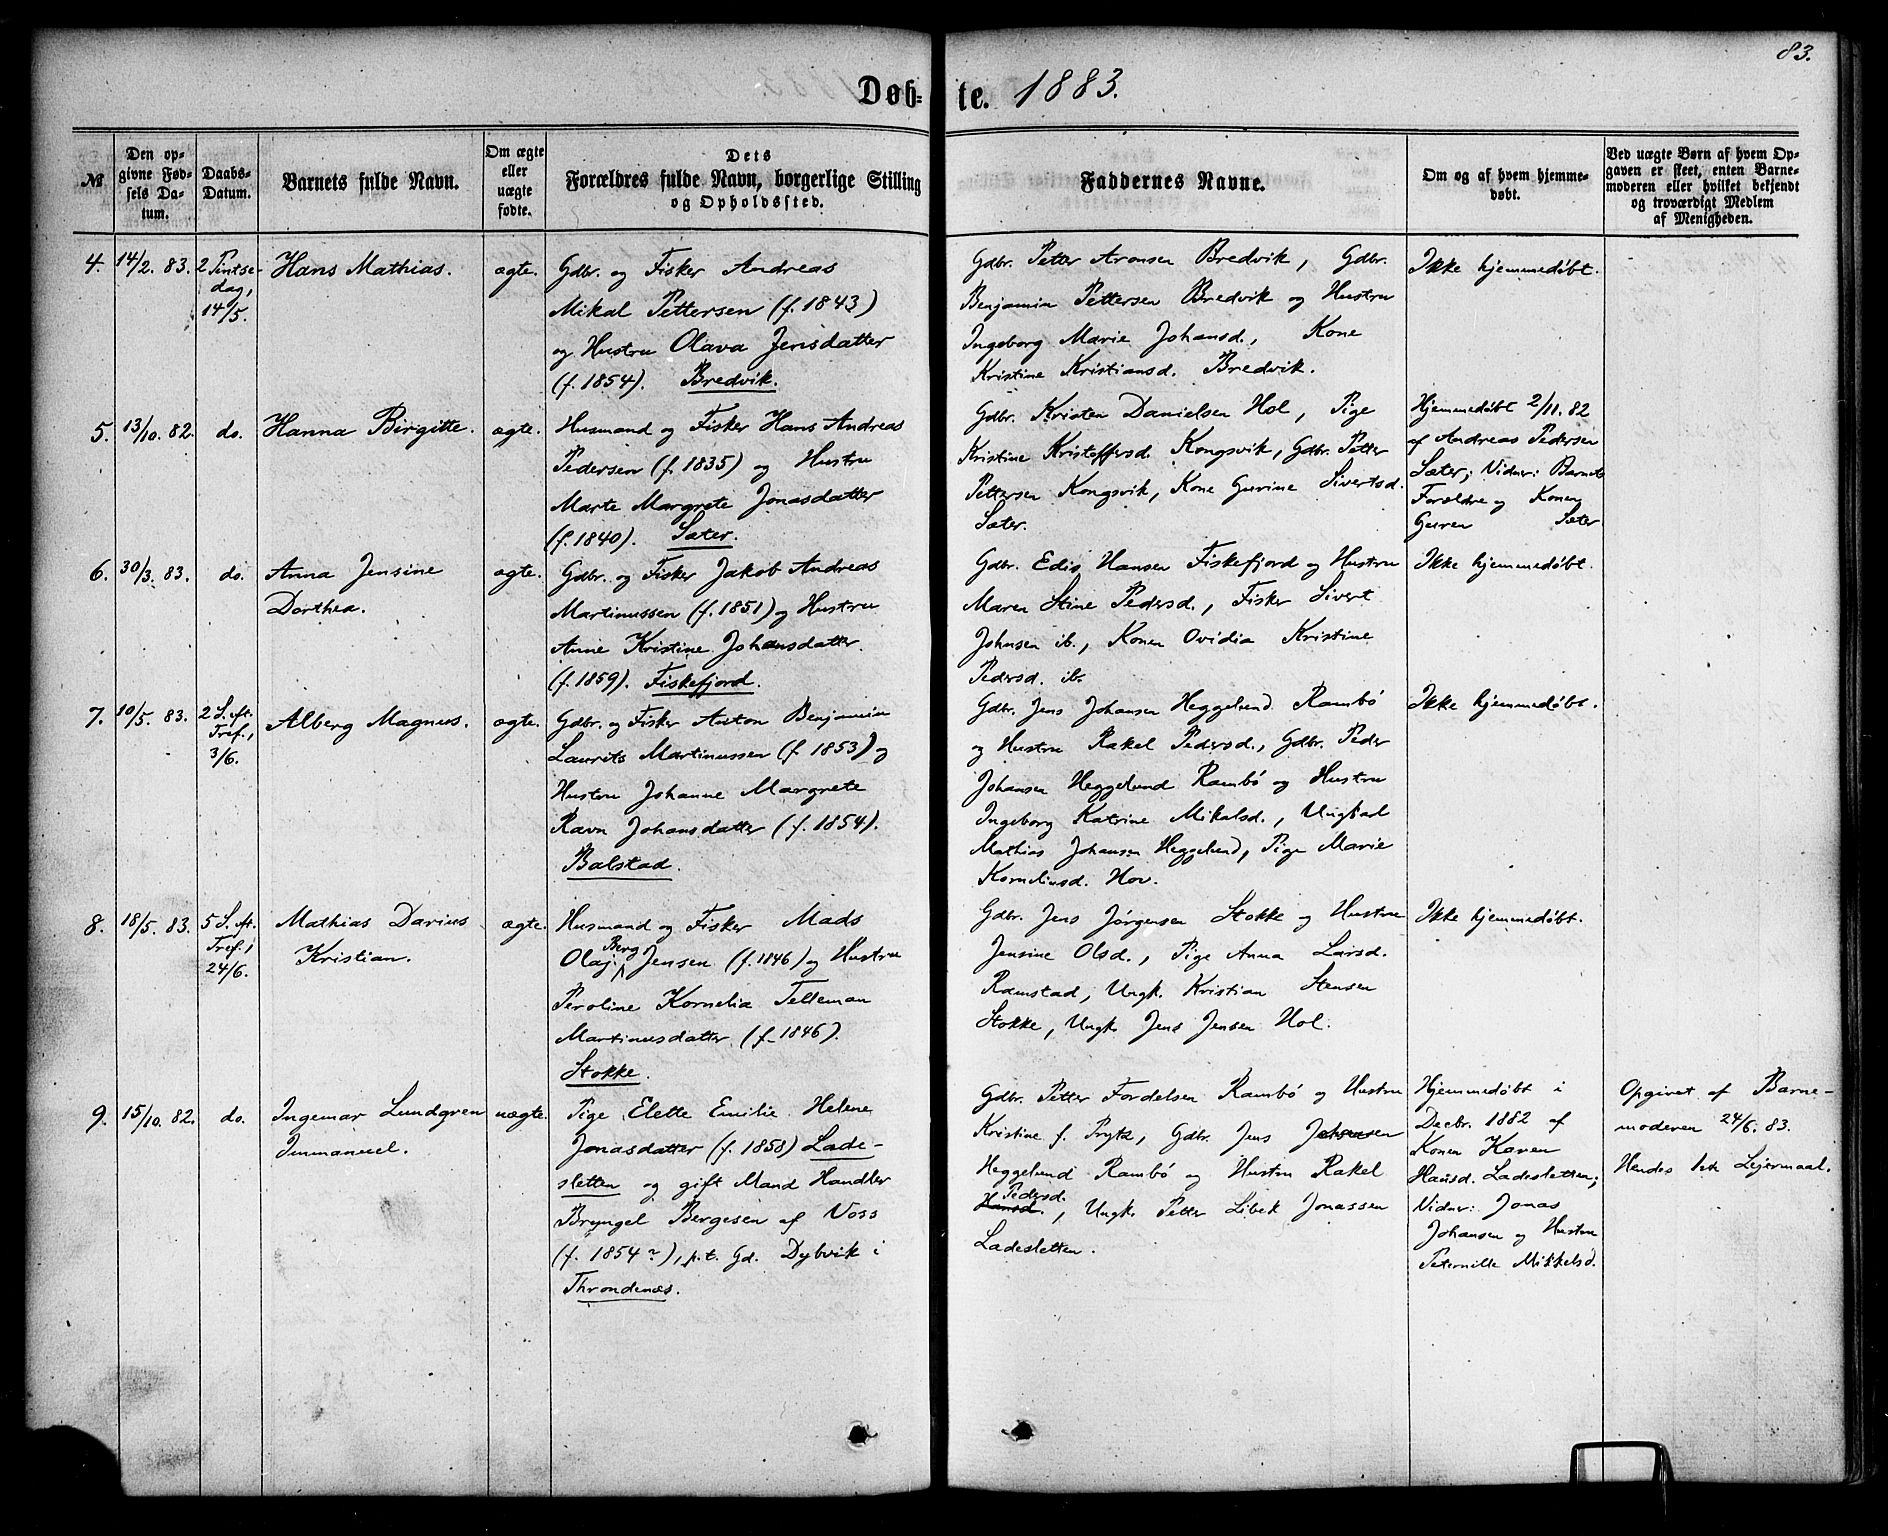 83.
Døb- te. 1883.
№
Den op-
givne Fød-
sels Da-
tum.
Daabs-
Datum.
Barnets fulde Navn.
Om ægte
eller
uægte
fødte.
Dets
Forældres fulde Navn, borgerlige Stilling
og Opholdssted.
Faddernes Navne.
Om og af hvem hjemme-
døbt.
Ved uægte Børn af hvem Op-
gaven er skeet, enten Barne-
moderen eller hvilket bekjendt
og troværdigt Medlem
af Menigheden.
4.
14/2. 83.
2 Pintse-
dag,
14/5.
Hans Mathias.
ægte.
Gdbr. og Fisker Andreas
Mikal Pettersen (f. 1843)
og Hustru Olava Jensdatter
(f. 1854). Bredvik.
Gdbr. Petter Aronsen Bredvik, Gdbr.
Benjamin Pettersen Bredvik og Hustru
Ingeborg Marie Johansd., Kone
Kristine Kristiansd. Bredvik.
Ikke hjemmedøbt.
5.
13/10. 82.
do.
Hanna Birgitte.
ægte.
Husmand og Fisker Hans Andreas
Pedersen (f. 1835) og Hustru
Marte Margrete Jonasdatter
(f. 1840). Sæter.
Gdbr. Kristen Danielsen Hol, Pige
Kristine Kristoffersd. Kongsvik, Gdbr. Petter
Pettersen Kongsvik, Kone Gurine Sivertsd.
Sæter.
Hjemmedøbt 2/11. 82
af Andreas Pedersen
Sæter; Vidner: Barnets
Forældre og Konen
Guren Sæter
6.
30/3. 83.
do.
Anna Jensine
Dorthea.
ægte.
Gdbr. og Fisker Jakob Andreas
Martinussen (f. 1851) og Hustru
Anne Kristine Johansdatter.
(f. 1859). Fiskefjord.
Gdbr. Edis Hansen Fiskefjord og Hustru
Maren Stine Pedersd., Fisker Sivert
Johnsen ib., Konen Ovidia Kristine
Pedersd. ib.
Ikke hjemmedøbt.
7.
10/5. 83.
2 S. eft.
Tref.,
3/6.
Alberg Magnus.
ægte.
Gdbr. og Fisker Anton Benjamin
Laurits Martinussen (f. 1853) og
Hustru Johanne Margrete
Ravn Johansdatter (f. 1854).
Balstad.
Gdbr. Jens Johansen Heggelund Rambø
og Hustru Rakel Pedersd., Gdbr. Peder
Johansen Heggelund Rambø og Hustru
Ingeborg Katrine Mikalsd., Ungkarl
Mathias Johansen Heggelund, Pige Marie
Korneliusd. Hov.
Ikke hjemmedøbt.
8.
18/5. 83.
5 S. eft.
Tref.,
24/6.
Mathias Darius
Kristian.
ægte.
Husmand og Fisker Mads
Berg
Olaj Jensen (f. 1846) og Hustru
Peroline Kornelia Telleman
Martinusdatter (f. 1846).
Stokke.
Gdbr. Jens Jørgensen Stokke og Hustru
Jensine Olsd., Pige Anna Larsd.
Ramstad, Ungk. Kristian Stensen
Stokke, Ungk. Jens Jensen Hol.
Ikke hjemmedøbt.
9.
15/10. 82.
do.
Ingemar Lundgren
Immanuel.
uægte.
Pige Elette Emilie Helene
Jonasdatter (f. 1858) Lade-
sletten og gift Mand Handler
Bryngel Bergesen af Voss
(f. 1854?), p.t. Gd. Dybvik i
Throndenæs.
Gdbr. Petter Fordelsen Rambø og Hustru
Kristine f. Prytz, Gdbr. Jens Johansen
Heggelund Rambø og Hustru Rakel
Pedersd.
Hansd., Ungk. Petter Libek Jonassen
Ladesletten.
Hjemmedøbt i
Decbr. 1882 af
Konen Karen
Hansd. Ladesletten;
Vidner: Jonas
Johansen og Hustru
Peternille Mikkelsd.
Opgivet af Barne-
moderen 24/6. 83.
Hendes 1ste Lejermaal.